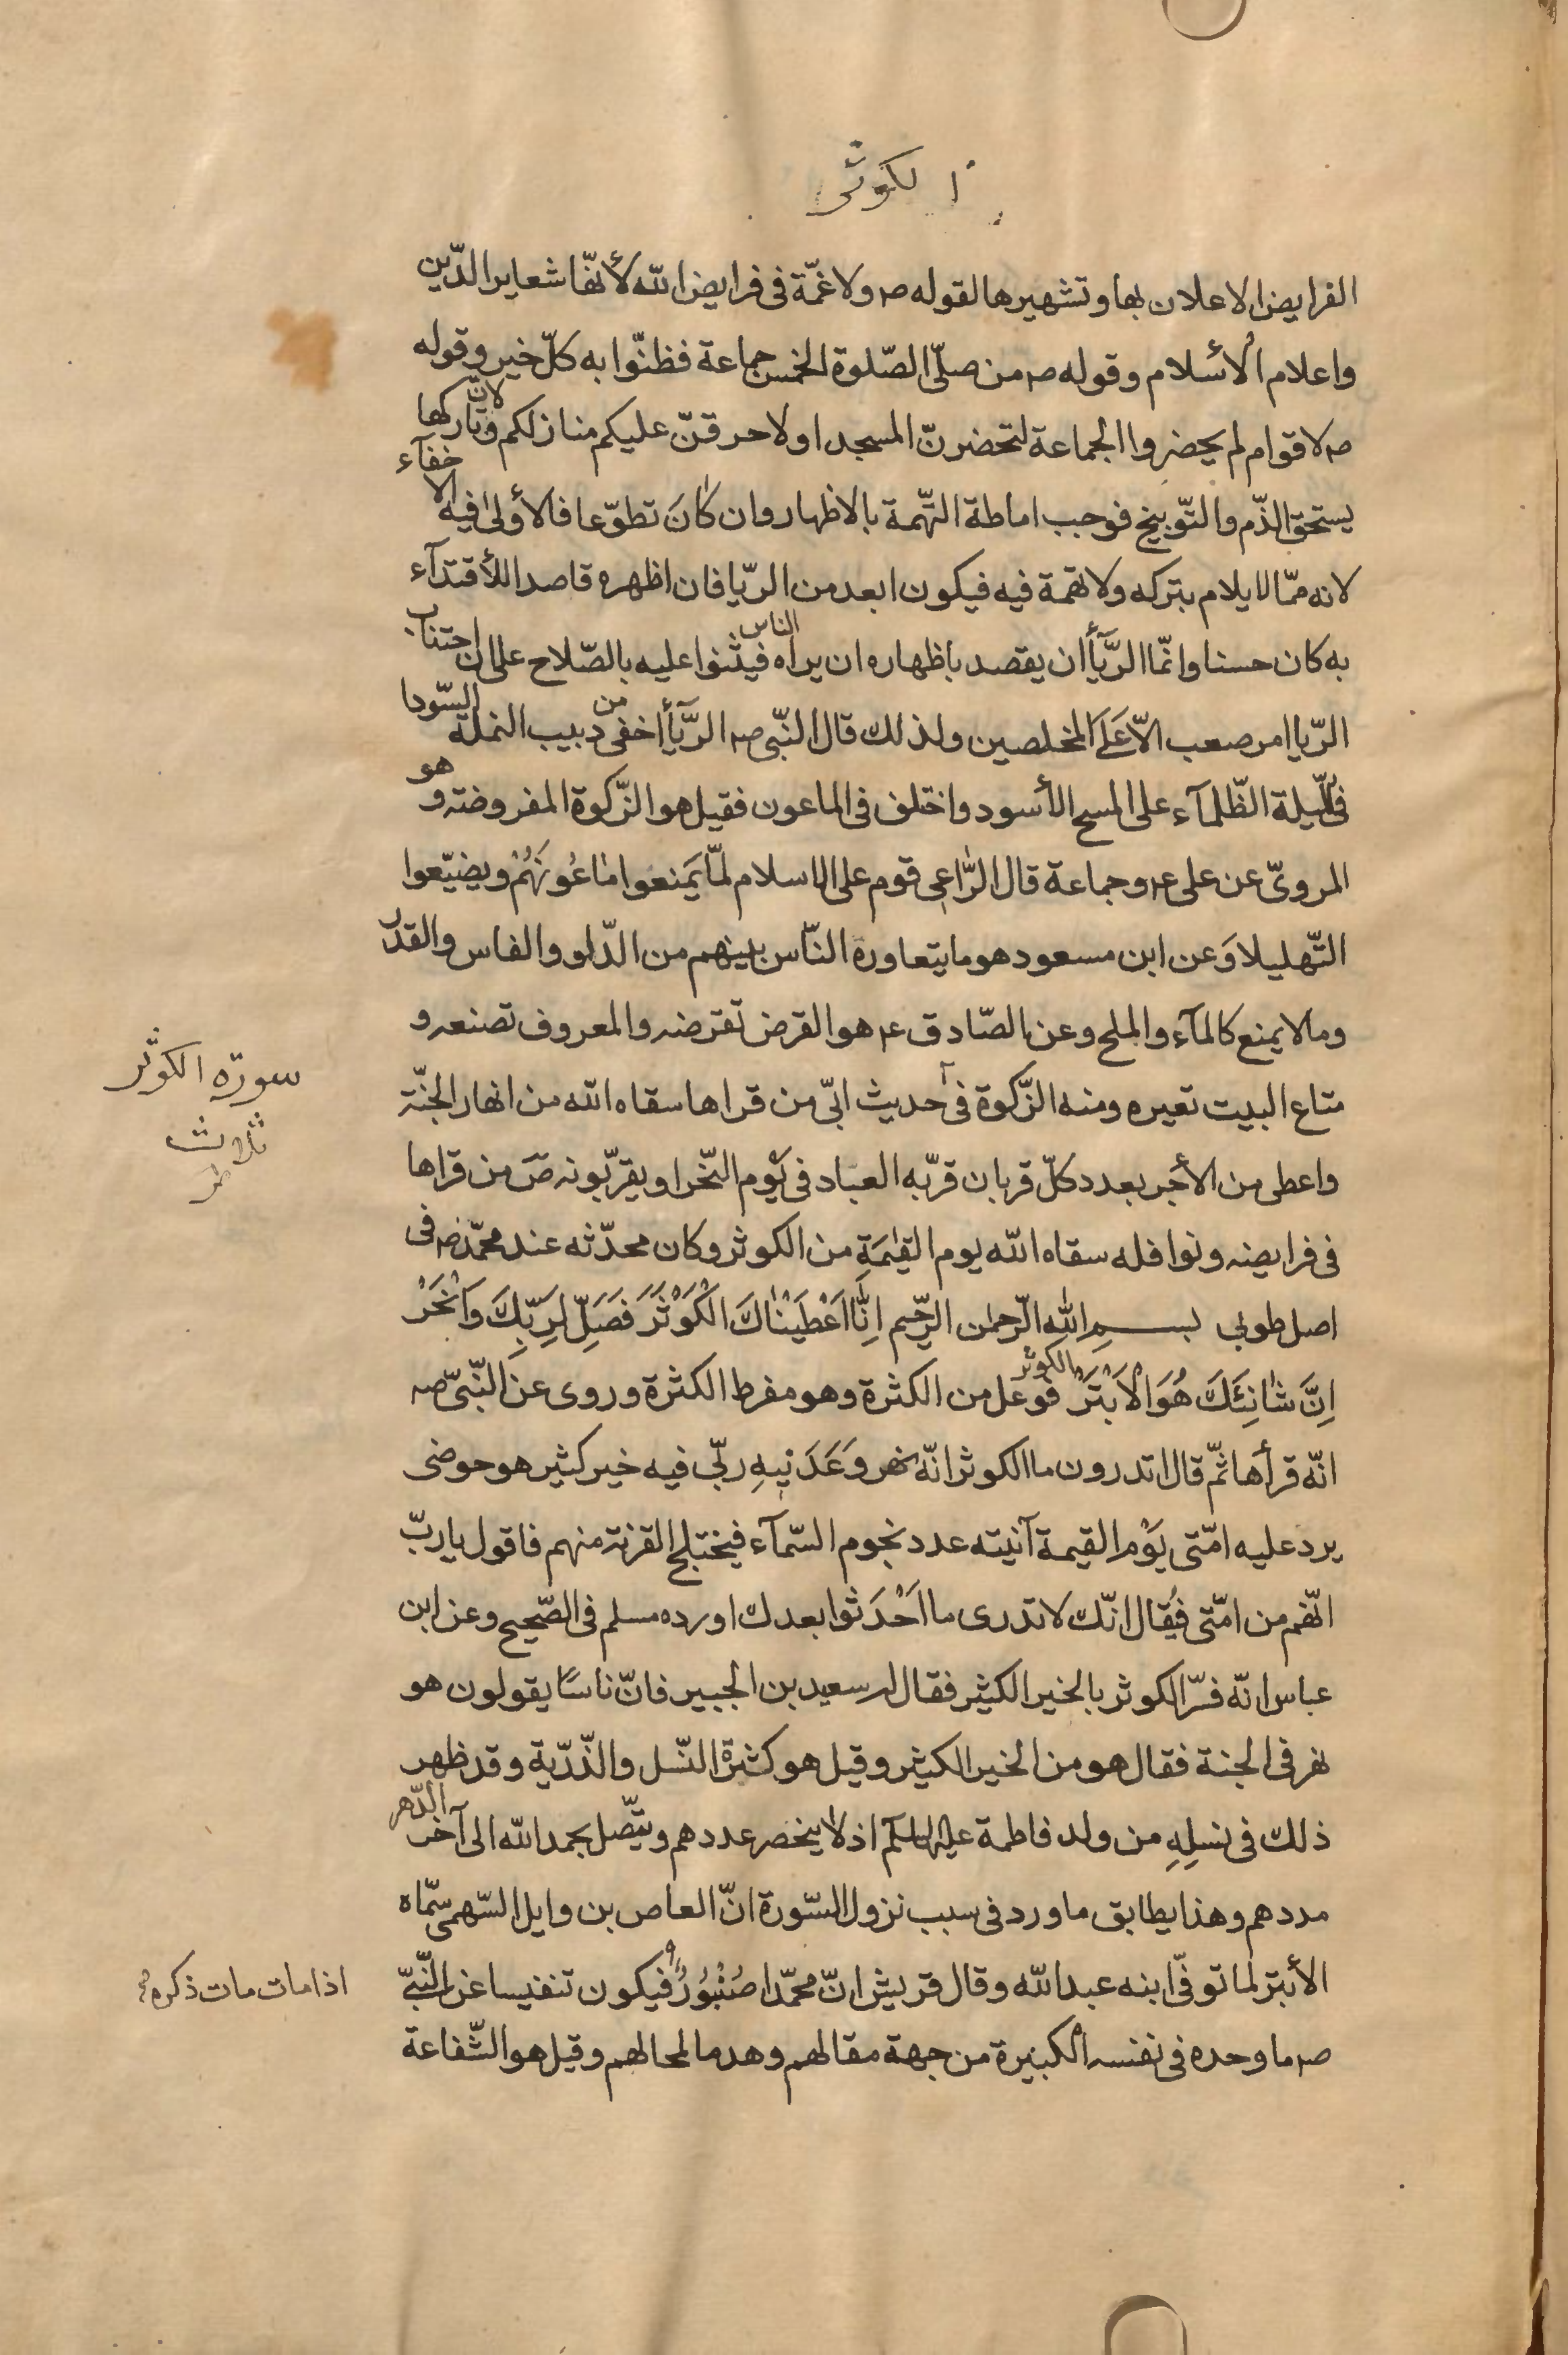 الكوثر
الفرايض الاعلان بها وتشهيرها لقوله ص ولا غمّة فى فرايض الله لأنّها شعاير الدّين
واعلام الأسلام وقوله ص من صلّى الصّلوة الخمس جماعة فظنّوا به كلّ خير وقوله
ص لاقوام لم يحضروا الجماعة لتحضرنّ المسجد او لاحرقنّ عليكم منازلكم ولانّ تاركها
يستحق الذّم والتّوبيخ فوجب اماطة التّهمة بالاظهار وان كانَ تطوّعا فالأولى فيه الاخفآء
لانه ممّا لا يلام بتركه ولا تهمة فيه فيكون ابعد من الرّيا فان اظهره قاصدا للأقتدآء
به كان حسنا وانّما الرّيآأ ان يقصد باظهاره ان يراه الناس فيثنوا عليه بالصّلاح على ان اجتناب
الرّيا امر صعب الاّ عَلَى المخلصين ولذلك قال النّبى ص الرّيآأ اخفى من دبيب النملة السّودا
فى اللّيلة الظّلمآء على المسح الأسود واختلف فى الماعون فقيل هو الزّكوة المفروضة وهو
المروىّ عن على ع وجماعة قال الرّاعى قوم على الاسلام لمّا يَمنعوا ماعُونَهُمْ ويضيّعوا
التّهليلا وَعن ابن مسعود هو ما يتعاوره النّاس بينهم من الدّلو والفاس والقدر
وما لا يمنع كالمآء والملح وعن الصّادق ع هو القرض تقرضه والمعروف تصنعه و
متاع البيت تعيره ومنه الزّكوة فى حديث ابىّ من قراها سقاه الله من انهار الجنّة
واعطى من الأجر بعدد كلّ قربان قرّبه العباد فى يَوم النّحر او يقرّبونه صَ من قراها
فى فرايضه ونوافله سقاه الله يوم القيٰمَةِ من الكوثر وكان محدّثه عند محمّد ص فى
اصل طوبى بسم الله الرّحمٰن الرّحيم اِنَّا اَعْطَيْنَاكَ الْكَوْثَرَ فَصَلِّ لِرَبِّكَ وَانْحَرْ
اِنَّ شَانِئَكَ هُوَ الْاَبْتَرُ الكوثر فوعل من الكثرة وهو مفرط الكثرة وروى عن النّبىّ ص
انّه قرأها ثمّ قال اتدرون ما الكوثر انّه نهر وَعَدَنِيهِ ربّى فيه خير كثير هو حوضى
يرد عليه امّتى يَوْم القيمة آنيته عدد نجوم السّمآء فيختلج القرن منهم فاقول يا ربّ
انّهم من امّتى فيُقال انّك لا تدرى ما اَحْدَثوا بعدك اورده مسلم فى الصّحيح وعن ابن
عباس انّه فسّر الكوثر بالخير الكثير فقال له سعيد بن الجبير فانّ ناسًا يقولون هو
نهر فى الجنة فقال هو من الخير الكثير وقيل هو كثرة النّسل والذّرّية وقد ظهر
ذلك فى نسلِهِ من ولد فاطمة عليها السلم اذ لا ينحصر عددهم ويتّصل بحمد الله الى آخر الدّهر
مددهم وهذا يطابق ما ورد فى سبب نزول السّورة انّ العاص بن وايل السّهمى سمّاه
الأبتر لما توفّى ابنه عبد الله وقال قريش انّ محمّدا صُنْبُورٌ فيكون تنفيسا عن النّبىّ
ص ما وجده فى نفسه الكبيرة من جهة مقالهم وهدما لمحالهم وقيل هو الشّفاعة
سورة الكوثر
ثلاث
اذا مات مات ذكره